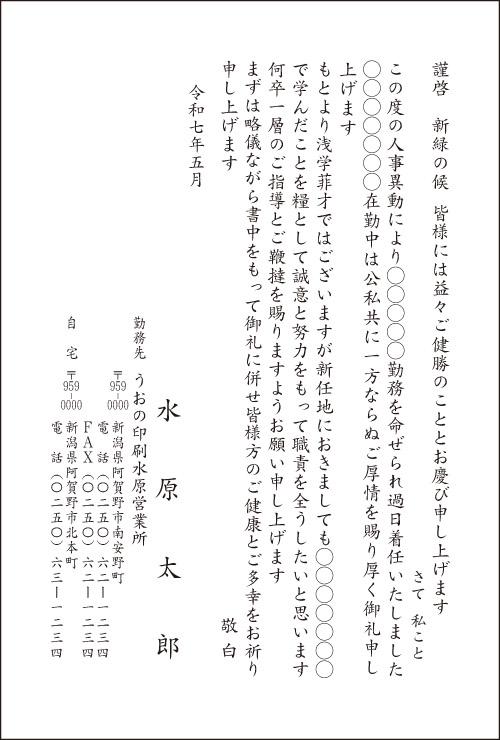 謹啓　新緑の候　皆様には益々ご健勝のこととお慶び申し上げます
さて　私こと
この度の人事異動により〇〇〇〇〇勤務を命ぜられ過日着任いたしました
〇〇〇〇〇〇〇在勤中は公私共に一方ならぬご厚情を賜り厚く御礼申し
上げます
もとより浅学菲才ではございますが新任地におきましても〇〇〇〇〇〇〇
で学んだことを糧として誠意と努力をもって職責を全うしたいと思います
何卒一層のご指導とご鞭撻を賜りますようお願い申し上げます
まずは略儀ながら書中をもって御礼に併せ皆様方のご健康とご多幸をお祈り
申し上げます
敬白
令和七年五月
水原太郎
勤務先　うおの印刷水原営業所
〒959-0000　新潟県阿賀野市南安野町
電話（〇二五〇）六二ー一二三四
ＦＡＸ（〇二五〇）六二ー一二三四
自宅　〒959-0000　新潟県阿賀野市北本町
電話（〇二五〇）六三ー一二三四